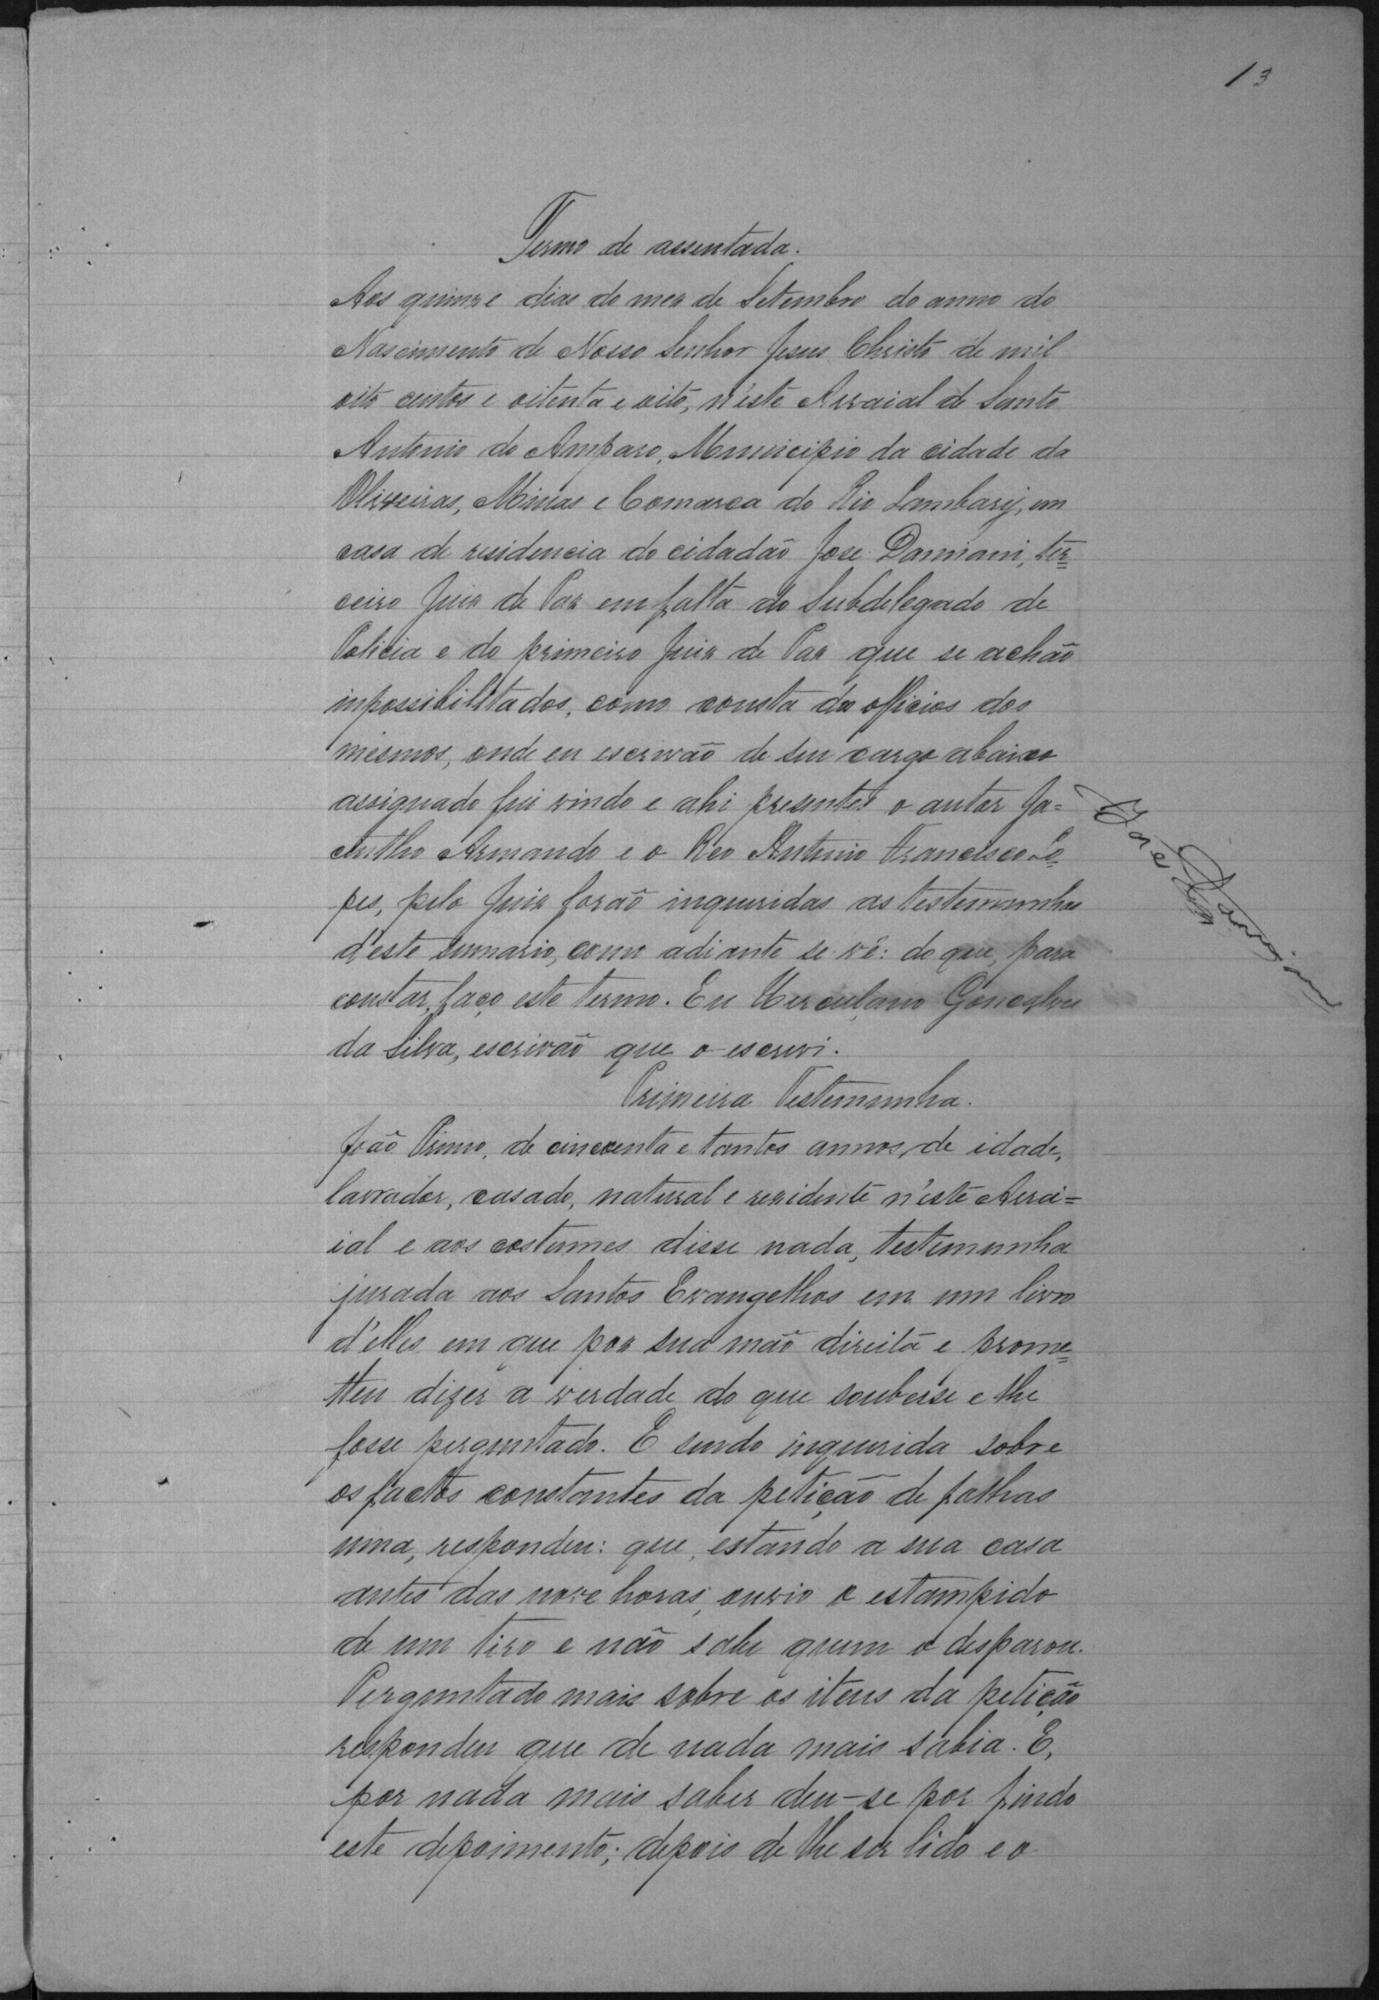 13
Termo de assentada.
Aos quinze dias do mez de Setembro do anno do
Nascimento de Nosso Senhor Jesus Christo de mil
oito centos e oitenta e oito, n'este Arraial de Santo
Antonio do Amparo, Municipio da cidade da
Oliveiras, Minas e Comarca do Rio Lambary, em
casa de residencia do cidadão Jose Damiani, ter=
ceiro Juiz de Paz em falta do Subdelegado de
Policia e do primeiro Juiz de Paz que se achão
impossibilitados, como consta de officios dos
mesmos, onde eu escrivão de seu cargo abaixo
assignado fui vindo e ahi presentes o autor Ja=
cintho Armando e o Reo Antonio Francisco Lo=
pes, pelo Juiz forão inqueridas as testemunhas
d'este sumario, como adiante se vê: do que, para
constar, faço este termo. Eu Herculano Gonçalves
da Silva, escrivão que o escrevi.
Jose Damiani
Primeira Testemunha.
João Primo, de cincoenta e tantos annos, de idade,
lavrador, casado, natural e rezidente n'este Arra=
ial e aos costumes disse nada, testemunha
jurada aos Santos Evangelhos em um livro
d'elles em que poz sua mão direita e prome=
tteu dizer a verdade do que soubesse e lhe
fosse perguntado. E sendo inquerida sobre
os factos constantes da petição de folhas
uma, respondeu: que, estando a sua casa
antes das nove horas, ouvio o estampido
de um tiro e não sabe quem o disparou.
Perguntado mais sobre os itens da petição
respondeu que de nada mais sabia. E,
por nada mais saber deu-se por findo
este depoimento; depois de lhe ser lido e o